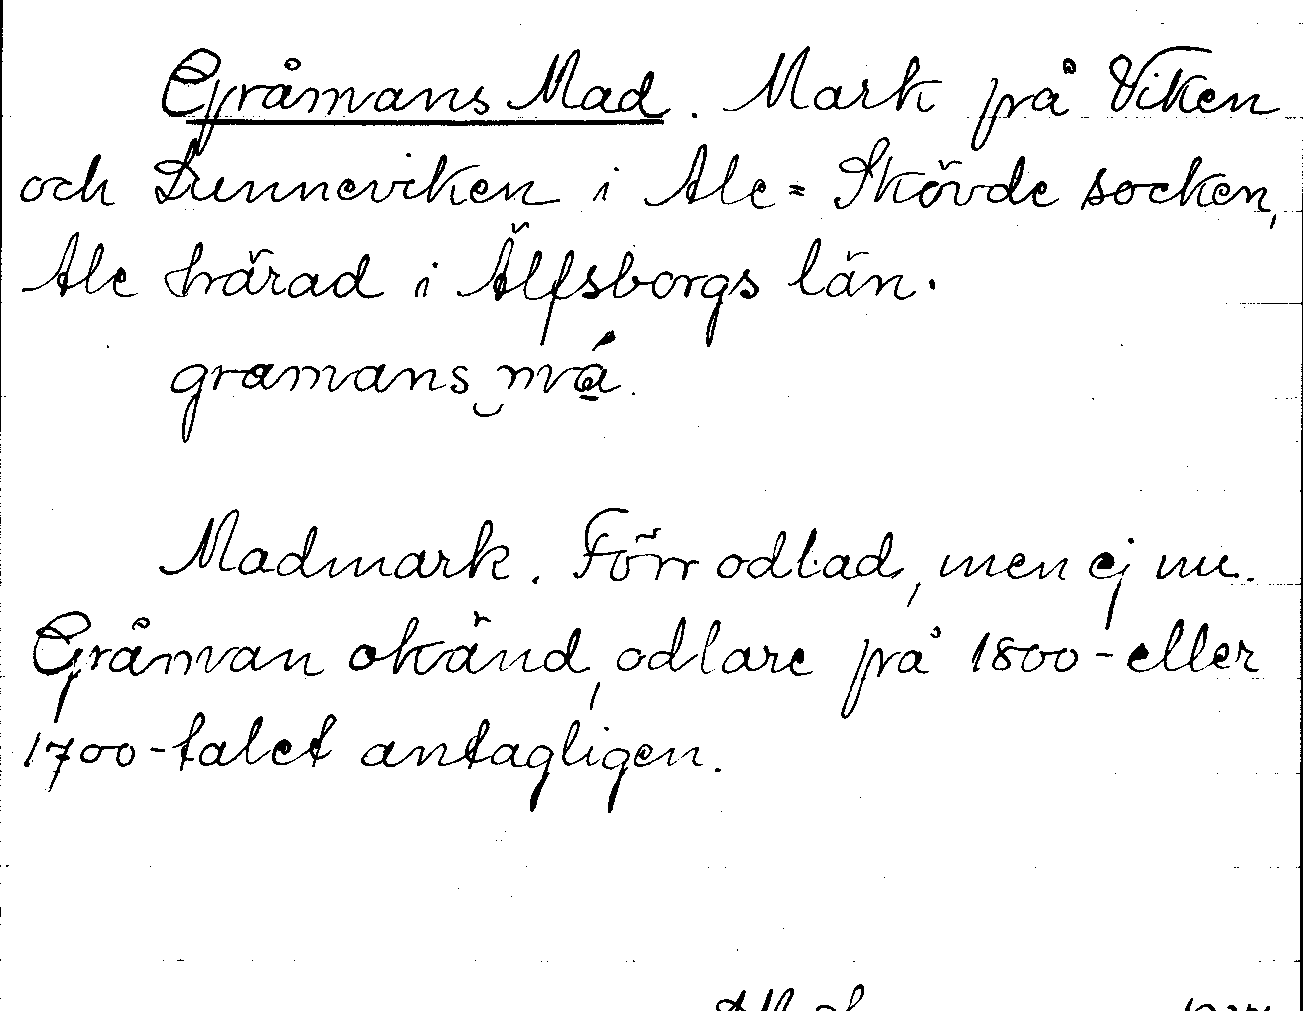 Gråmans Mad. Mark på Viken
och Dunneviken i Ale-Skövde socken,
Ale härad i Älfsborgs län.
gramans má.
Madmark. Förr odlad, men ej nu.
Gråman okänd, odlare på 1800-eller
1700-talet antagligen.